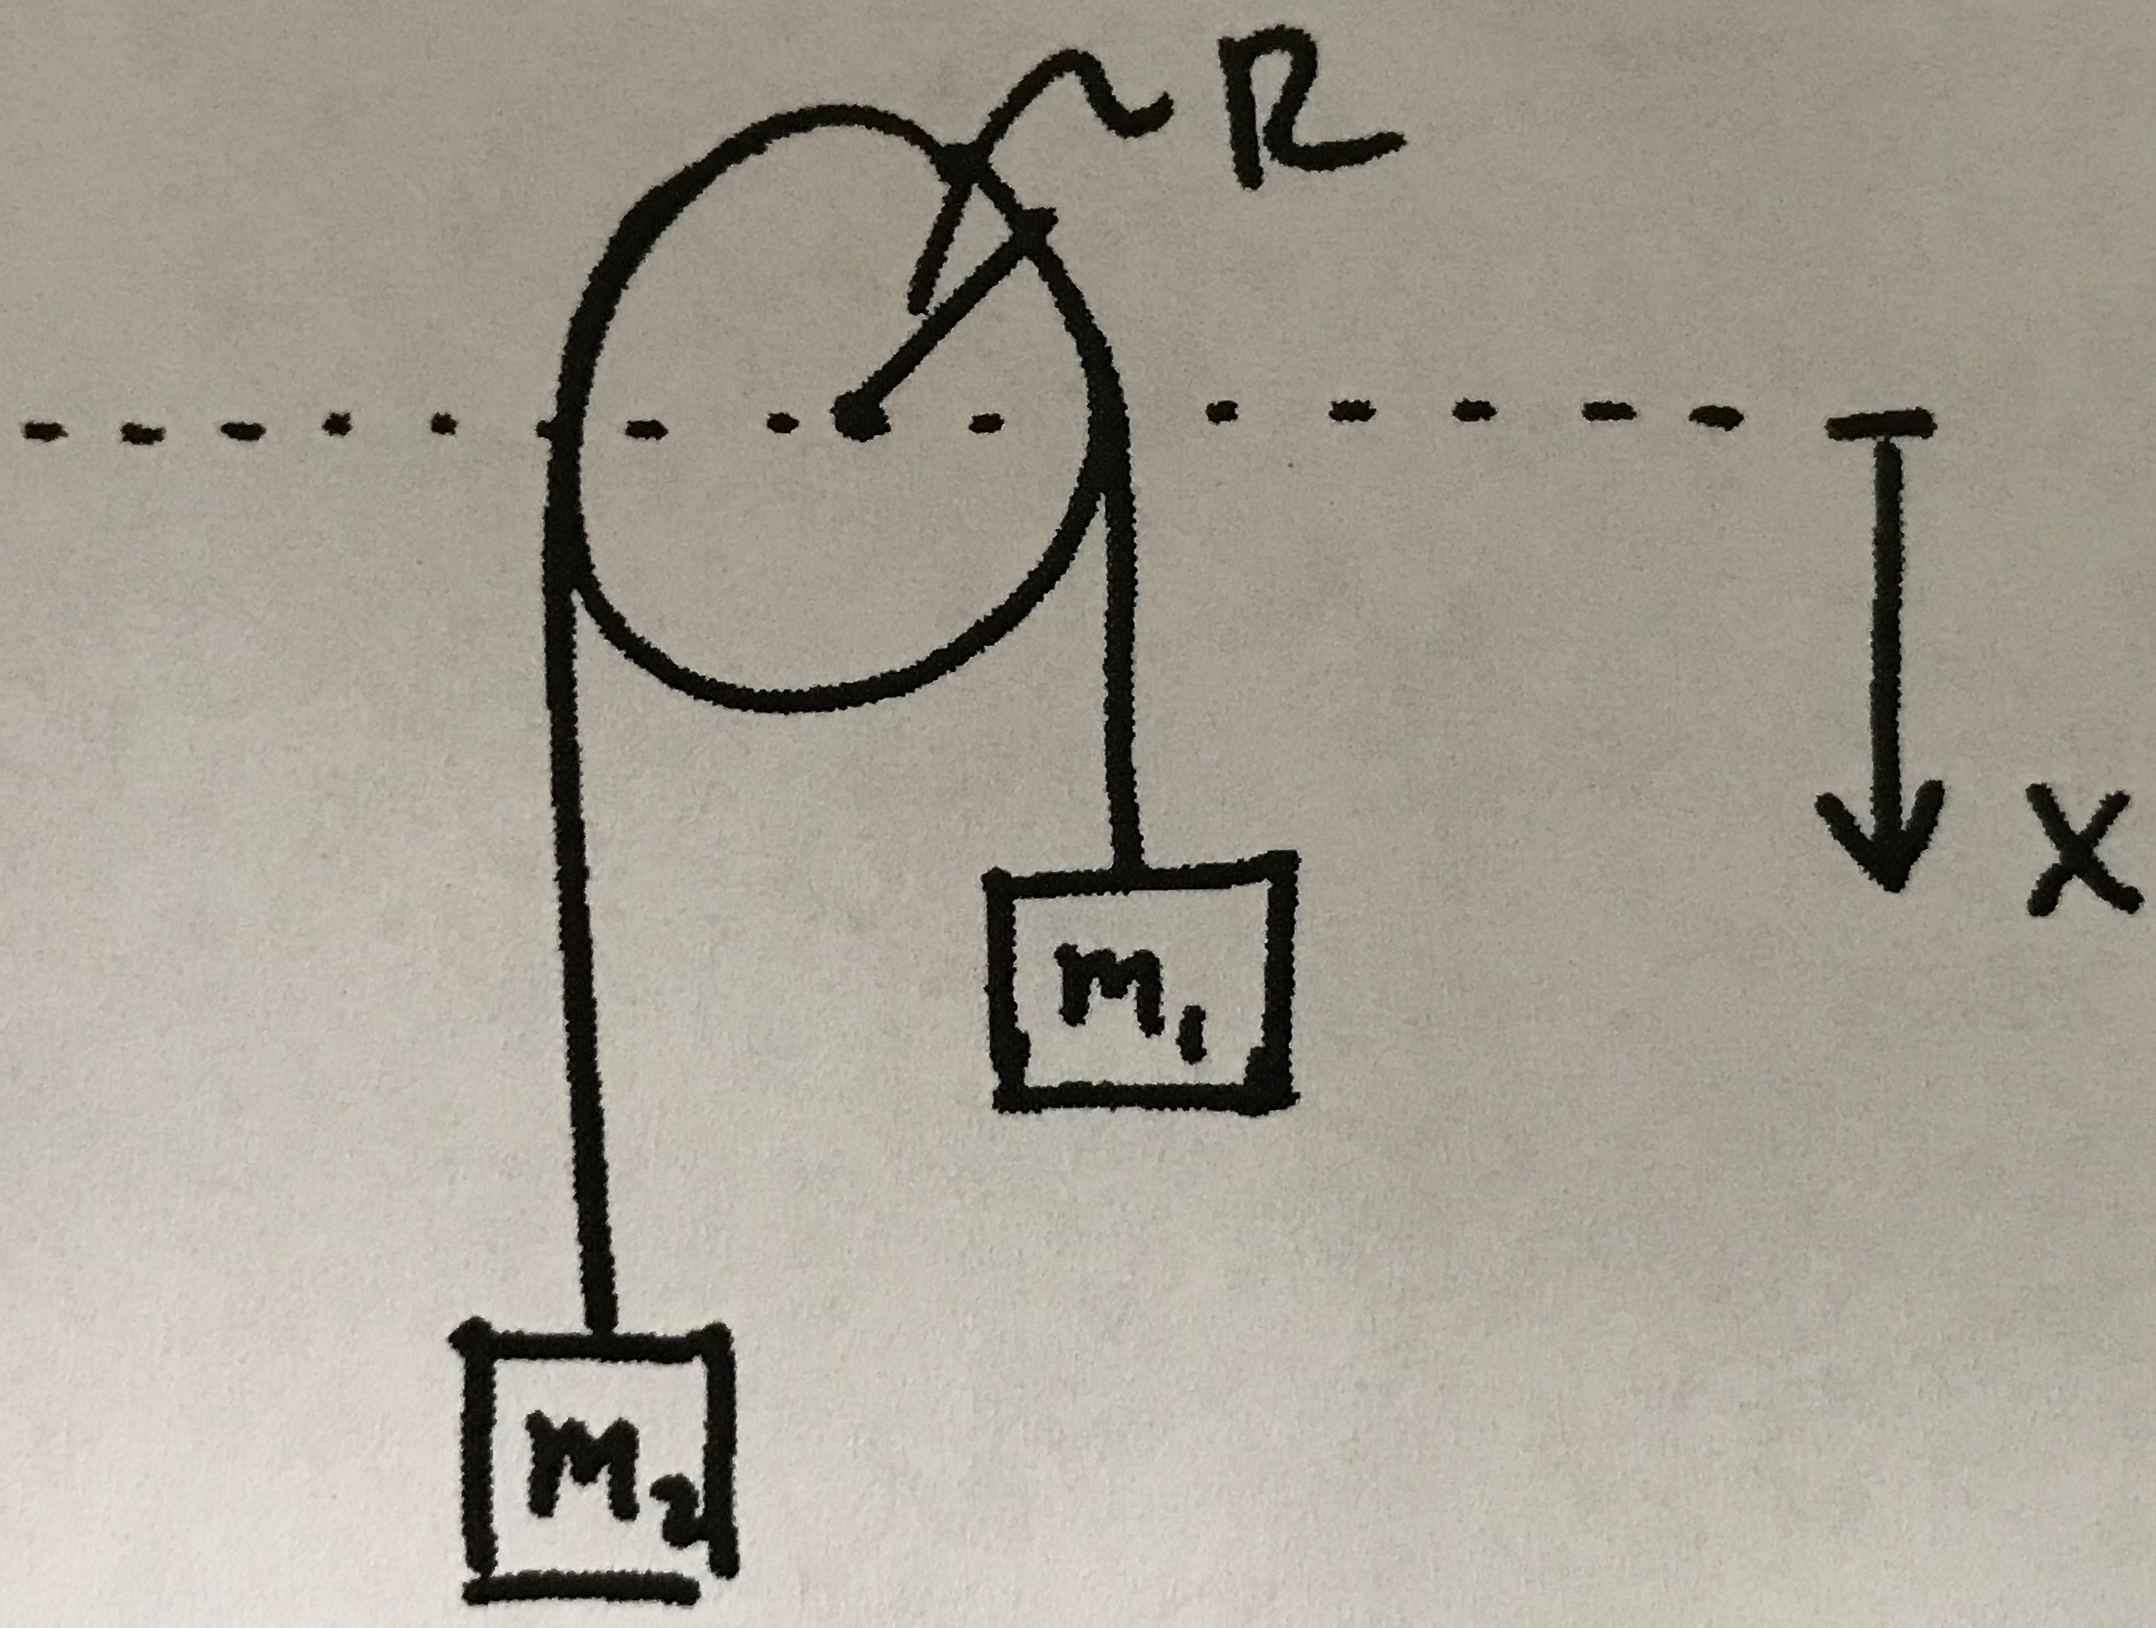 R
X
m₁
m₂